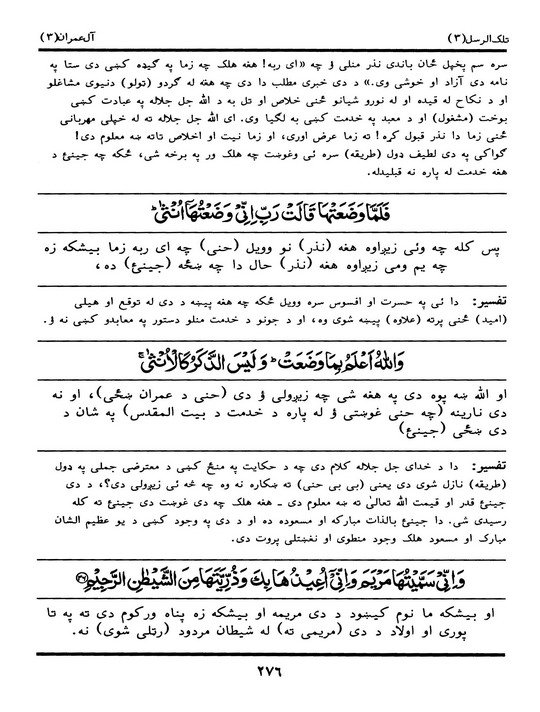 تلک الرسل(٣) آل عمران(٣)
سره سم پخپل ځان باندی نذر منلی ؤ چه «ای ربه! هغه هلک چه زما په گیډه کښی دی ستا په
نامه دی آزاد او خوشی وی.» د دی خبری مطلب دا دی چه هغه له گردو (تولو) دنیوی مشاغلو
او د نکاح له قیده او له نورو شیانو ځنی خلاص او تل به د الله جل جلاله په عبادت کښی
بوخت (مشغول) او د معبد په خدمت کښی به لگیا وی. ای الله جل جلاله ته له خپلی مهربانی
ځنی زما دا نذر قبول کړه! ته زما عرض اوری، او زما نیت او اخلاص تاته ښه معلوم دی!
گواکی په دی لطیف ډول (طریقه) سره ئی وغوښت چه هلک ور په برخه شی، ځکه چه جینئ د
هغه خدمت له پاره نه قبلیدله.
فَلَمَّا وَضَعَتْهَا قَالَتْ رَبِّ اِنِّیْ وَضَعْتُهَاۤ اُنْثٰیؕ
پس کله چه وئی زیږاوه هغه (نذر) نو وویل (حنی) چه ای ربه زما بیشکه زه
چه یم ومی زیږاوه هغه (نذر) حال دا چه ښځه (جینئ) ده،
تفسیر: دا ئی په حسرت او افسوس سره وویل ځکه چه هغه پیښه د دی له توقع او هیلی
(امید) ځنی پرته (علاوه) پیښه شوی وه، او د جونو د خدمت منلو دستور په معابدو کښی نه ؤ.
وَاللّٰهُ اَعْلَمُ بِمَا وَضَعَتْؕ وَ لَیْسَ الذَّكَرُ كَالْاُنْثٰیۚ
او الله ښه پوه دی په هغه شی چه زیږولی ؤ دی (حنی د عمران ښځی)، او نه
دی نارینه (چه حنی غوښتی ؤ له پاره د خدمت د بیت المقدس) په شان د
دی ښځی (جینئ)
تفسیر: دا د خدای جل جلاله کلام دی چه د حکایت په منځ کښی د معترضی جملی په ډول
(طریقه) نازل شوی دی یعنی (بی بی حنی) ته ښکاره نه وه چه څه ئی زیږولی دی؟، د دی
جینئ قدر او قیمت الله تعالیٰ ته ښه معلوم دی ـ هغه هلک چه دی غوښت دی جینئ ته کله
رسیدی شی. دا جینئ بالذات مبارکه او مسعوده ده او د دی په وجود کښی د یو عظیم الشان
مبارک او مسعود هلک وجود منطوی او نغښتلی پروت دی.
وَ اِنِّیْ سَمَّیْتُهَا مَرْیَمَ وَ اِنِّیْۤ اُعِیْذُهَا بِكَ وَ ذُرِّیَّتَهَا مِنَ الشَّیْطٰنِ الرَّجِیْمِ ﴿۳۶﴾
او بیشکه ما نوم کیښود د دی مریمه او بیشکه زه پناه ورکوم دی ته په تا
پوری او اولاد د دی (مریمی ته) له شیطان مردود (رتلی شوی) نه.
٢٧٦